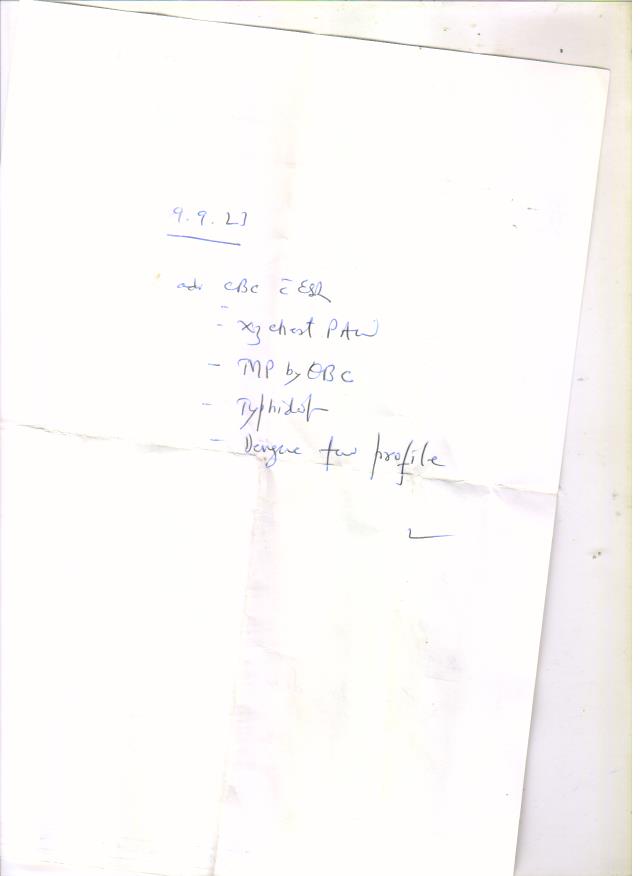 9.9.23
adv CBC c̄ ESR
- Xray chest PA
- MP by QBC
- Typhidot
- Dengue profile